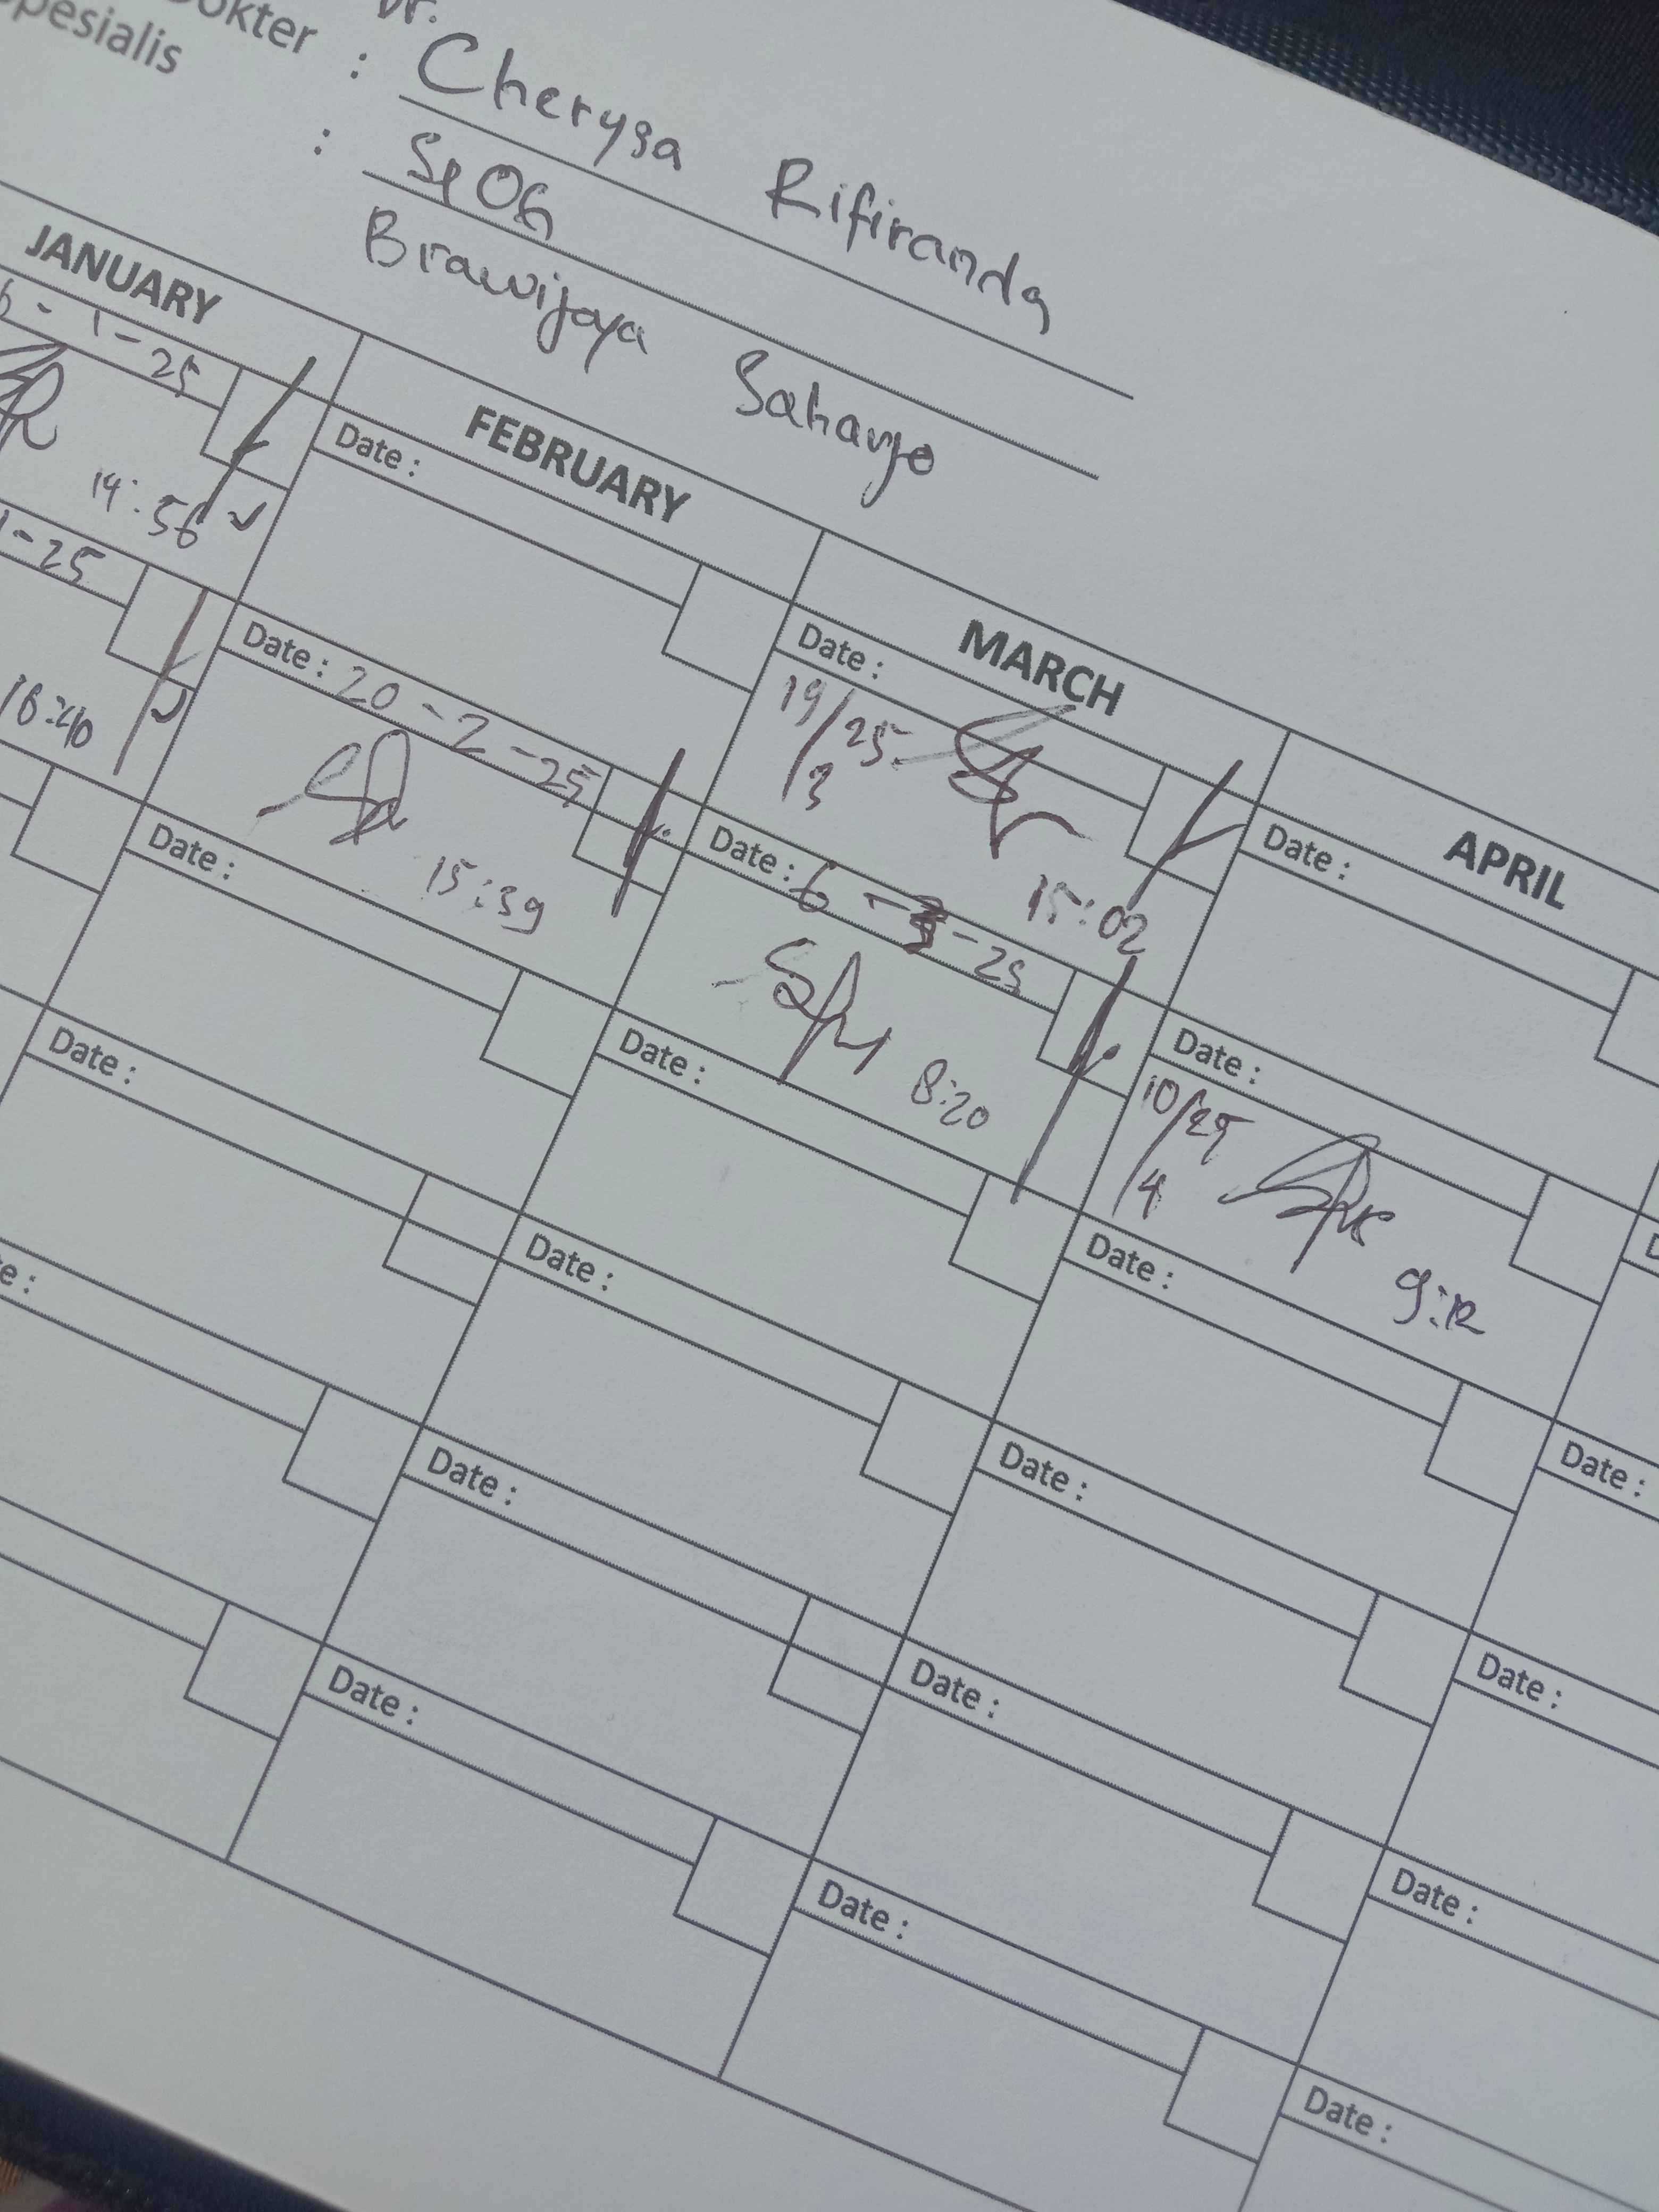 Dr.
Dokter : Cherysa Rifiranda
Spesialis : SpOG
Brawijaya Saharjo
JANUARY FEBRUARY MARCH APRIL
6-1-25
14:56
Date :
Date :
19/25
3
15:02
Date :
1-25
16:40
Date : 20-2-25
15:39
Date : 6-3-25
8:20
Date :
10/25
4
9:12
Date :
Date :
Date :
Date :
Date :
Date :
Date :
e :
Date :
Date :
Date :
Date :
Date :
Date :
Date :
Date :